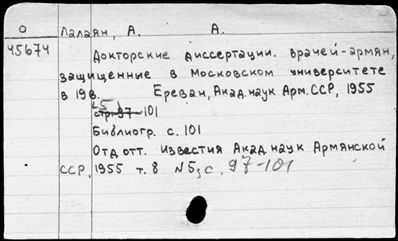 О
45674
Лалаян, А. А.
Докторские диссертации врачей-армян,
защищенные в Московском университете
в 19в. Ереван, Акад. наук Арм. ССР, 1955
(5)
стр. 97-101
Библиогр. с. 101
Отд. отт. Известия Акад. наук Армянской
ССР, 1955 т. 8 N5, с. 97-101